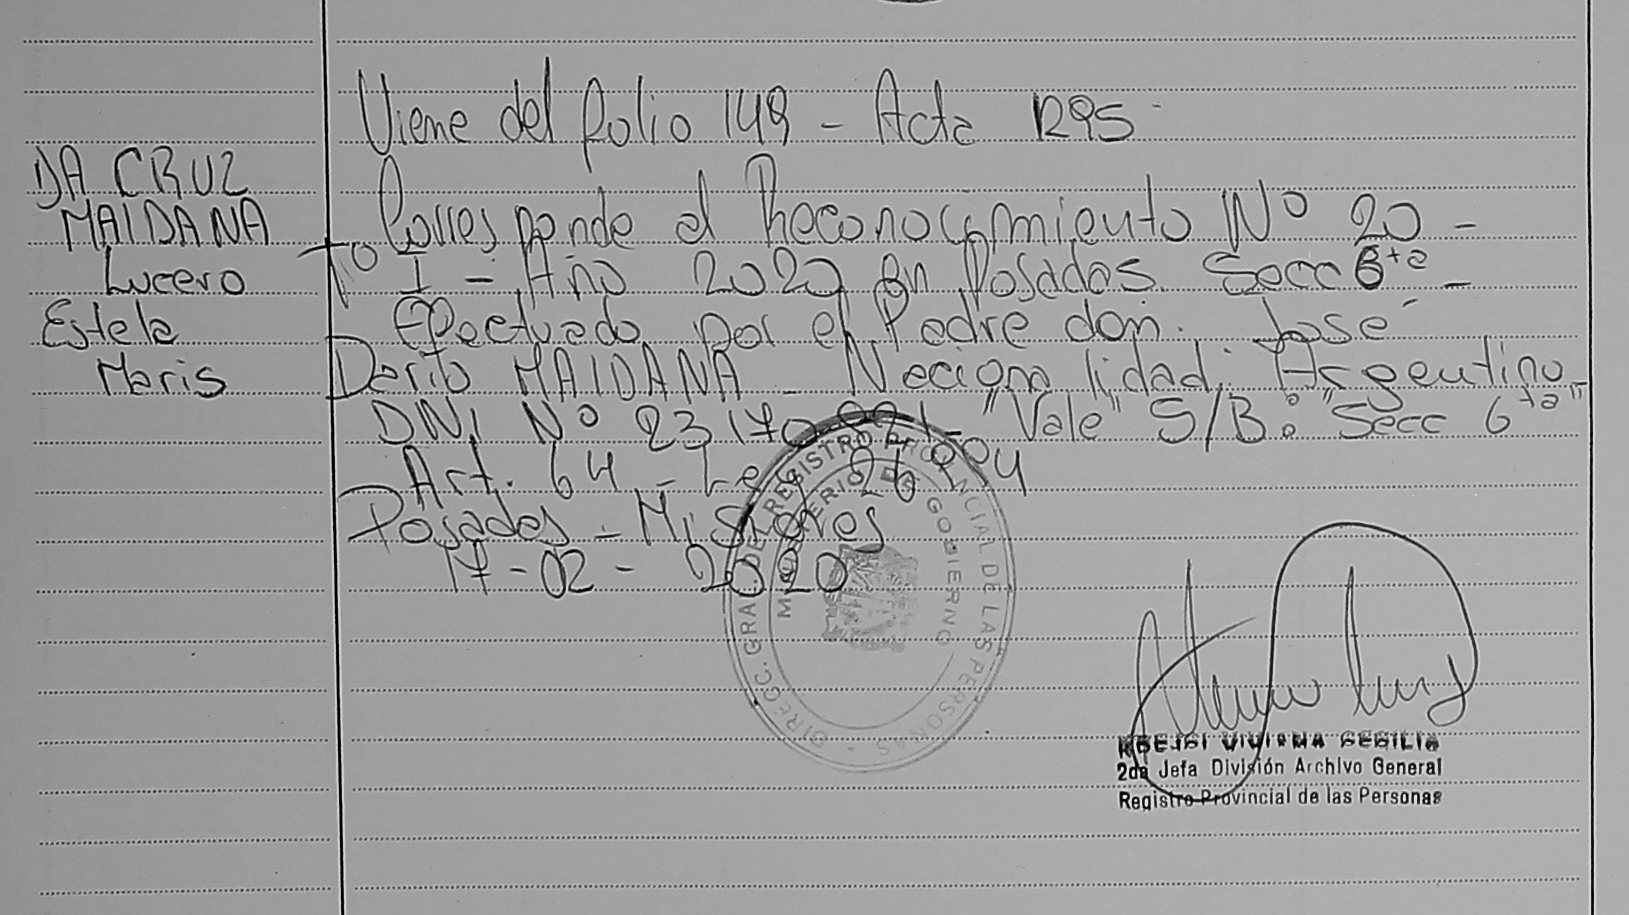 Viene del folio 149 - Acta 1295-
DA CRUZ
MAIDANA
Lucero
Estela
Maris
Corresponde al Reconocimiento Nº 20 -
Tº I - Año 2020 en Posadas. Secc 6ta -
Efectuado por el Padre don: José
Darío MAIDANA - Nacionalidad: Argentino
DNI Nº 23.170.
"Vale" S/B: "Secc 6ta"
Art. 64 - Ley 26994
Posadas - Misiones
17-02-2020
DIRECC. GRAL. DEL REGISTRO PROVINCIAL DE LAS PERSONAS -
MINISTERIO DE GOBIERNO
VIVIANA
2da Jefa División Archivo General
Registro Provincial de las Personas